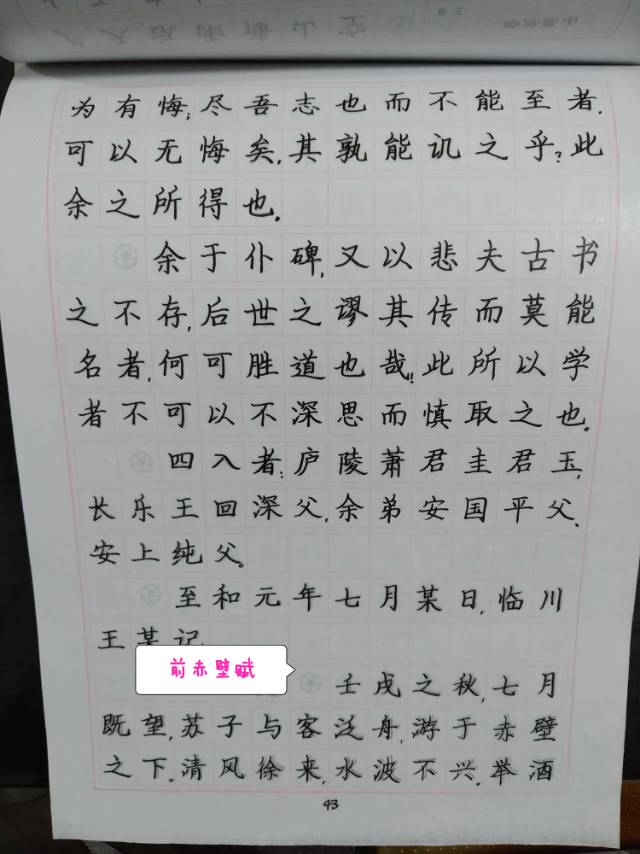 空山新雨后,天气
为有悔;尽吾志也而不能至者,
可以无悔矣,其孰能讥之乎?此
余之所得也。
余于仆碑,又以悲夫古书
之不存,后世之谬其传而莫能
名者,何可胜道也哉!此所以学
者不可以不深思而慎取之也。
四人者:庐陵萧君圭君玉,
长乐王回深父,余弟安国平父、
安上纯父。
至和元年七月某日,临川
王某记。
前赤壁赋
壬戌之秋,七月
既望,苏子与客泛舟,游于赤壁
之下。清风徐来,水波不兴。举酒
43